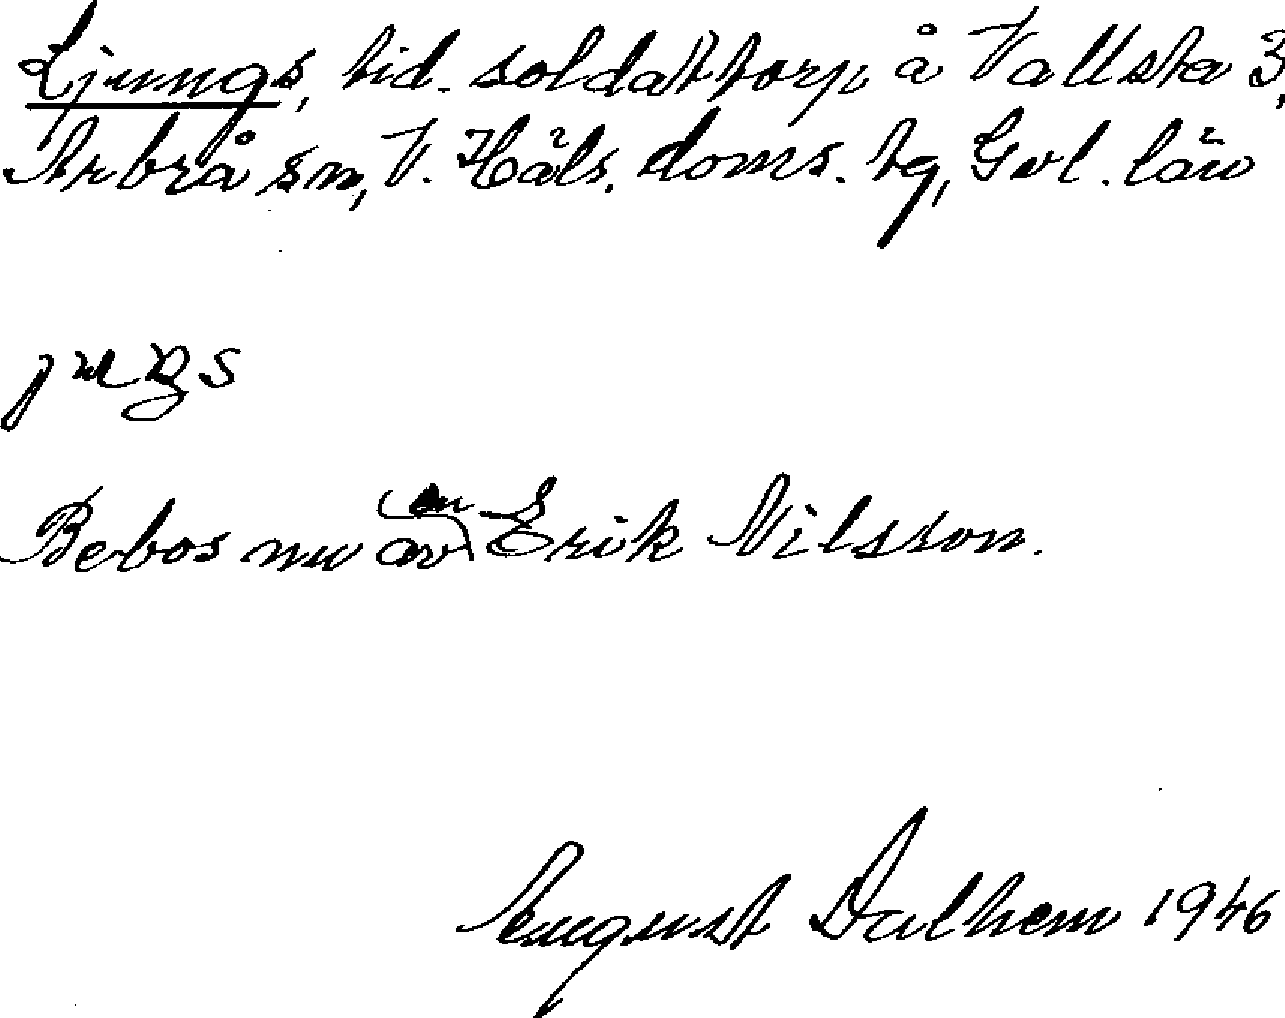 Ljungs, tid. soldattorp å Vallsta 3,
Arbrå sn, V. Häls. doms. tg, Gvl. län
Bebos nu av en Erik Nilsson.
August Dalhem 1946